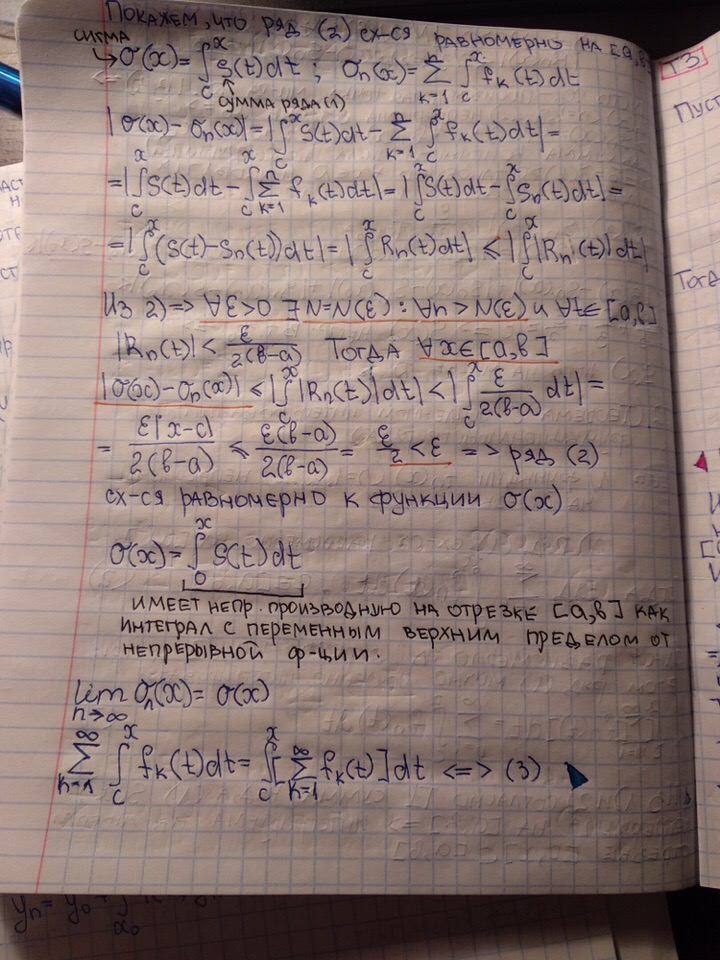 Покажем, что ряд (2) сх-ся равномерно на [a,b]
сигма
σ(x)=∫_c^x S(t)dt ; σₙ(x)=∑_{k=1}^n ∫_c^x fₖ(t)dt
сумма ряда (1)
|σ(x)-σₙ(x)|=|∫_c^x S(t)dt-∑_{k=1}^n ∫_c^x fₖ(t)dt|=
=|∫_c^x S(t)dt-∫_c^x ∑_{k=1}^n fₖ(t)dt|=|∫_c^x S(t)dt-∫_c^x Sₙ(t)dt|=
=|∫_c^x (S(t)-Sₙ(t))dt|=|∫_c^x Rₙ(t)dt| ≤ |∫_c^x |Rₙ(t)|dt|
Из 2) => ∀ε>0 ∃N=N(ε): ∀n>N(ε) и ∀t∈[a,b]
|Rₙ(t)| < ε/2(b-a) Тогда ∀x∈[a,b]
|σ(x)-σₙ(x)| ≤ |∫_c^x |Rₙ(t)|dt| < |∫_c^x ε/2(b-a) dt|=
= ε|x-c|/2(b-a) ≤ ε(b-a)/2(b-a) = ε/2 < ε => ряд (2)
сх-ся равномерно к функции σ(x)
σ(x)=∫_0^x S(t)dt
имеет непр. производную на отрезке [a,b] как
интеграл с переменным верхним пределом от
непрерывной ф-ции.
lim_{n→∞} σₙ(x)=σ(x)
∑_{k=1}^∞ ∫_c^x fₖ(t)dt=∫_c^x [∑_{k=1}^∞ fₖ(t)]dt <=> (3)
ТЗ
Пуст
Тогд
yₙ = y₀ + ∫_{x₀}